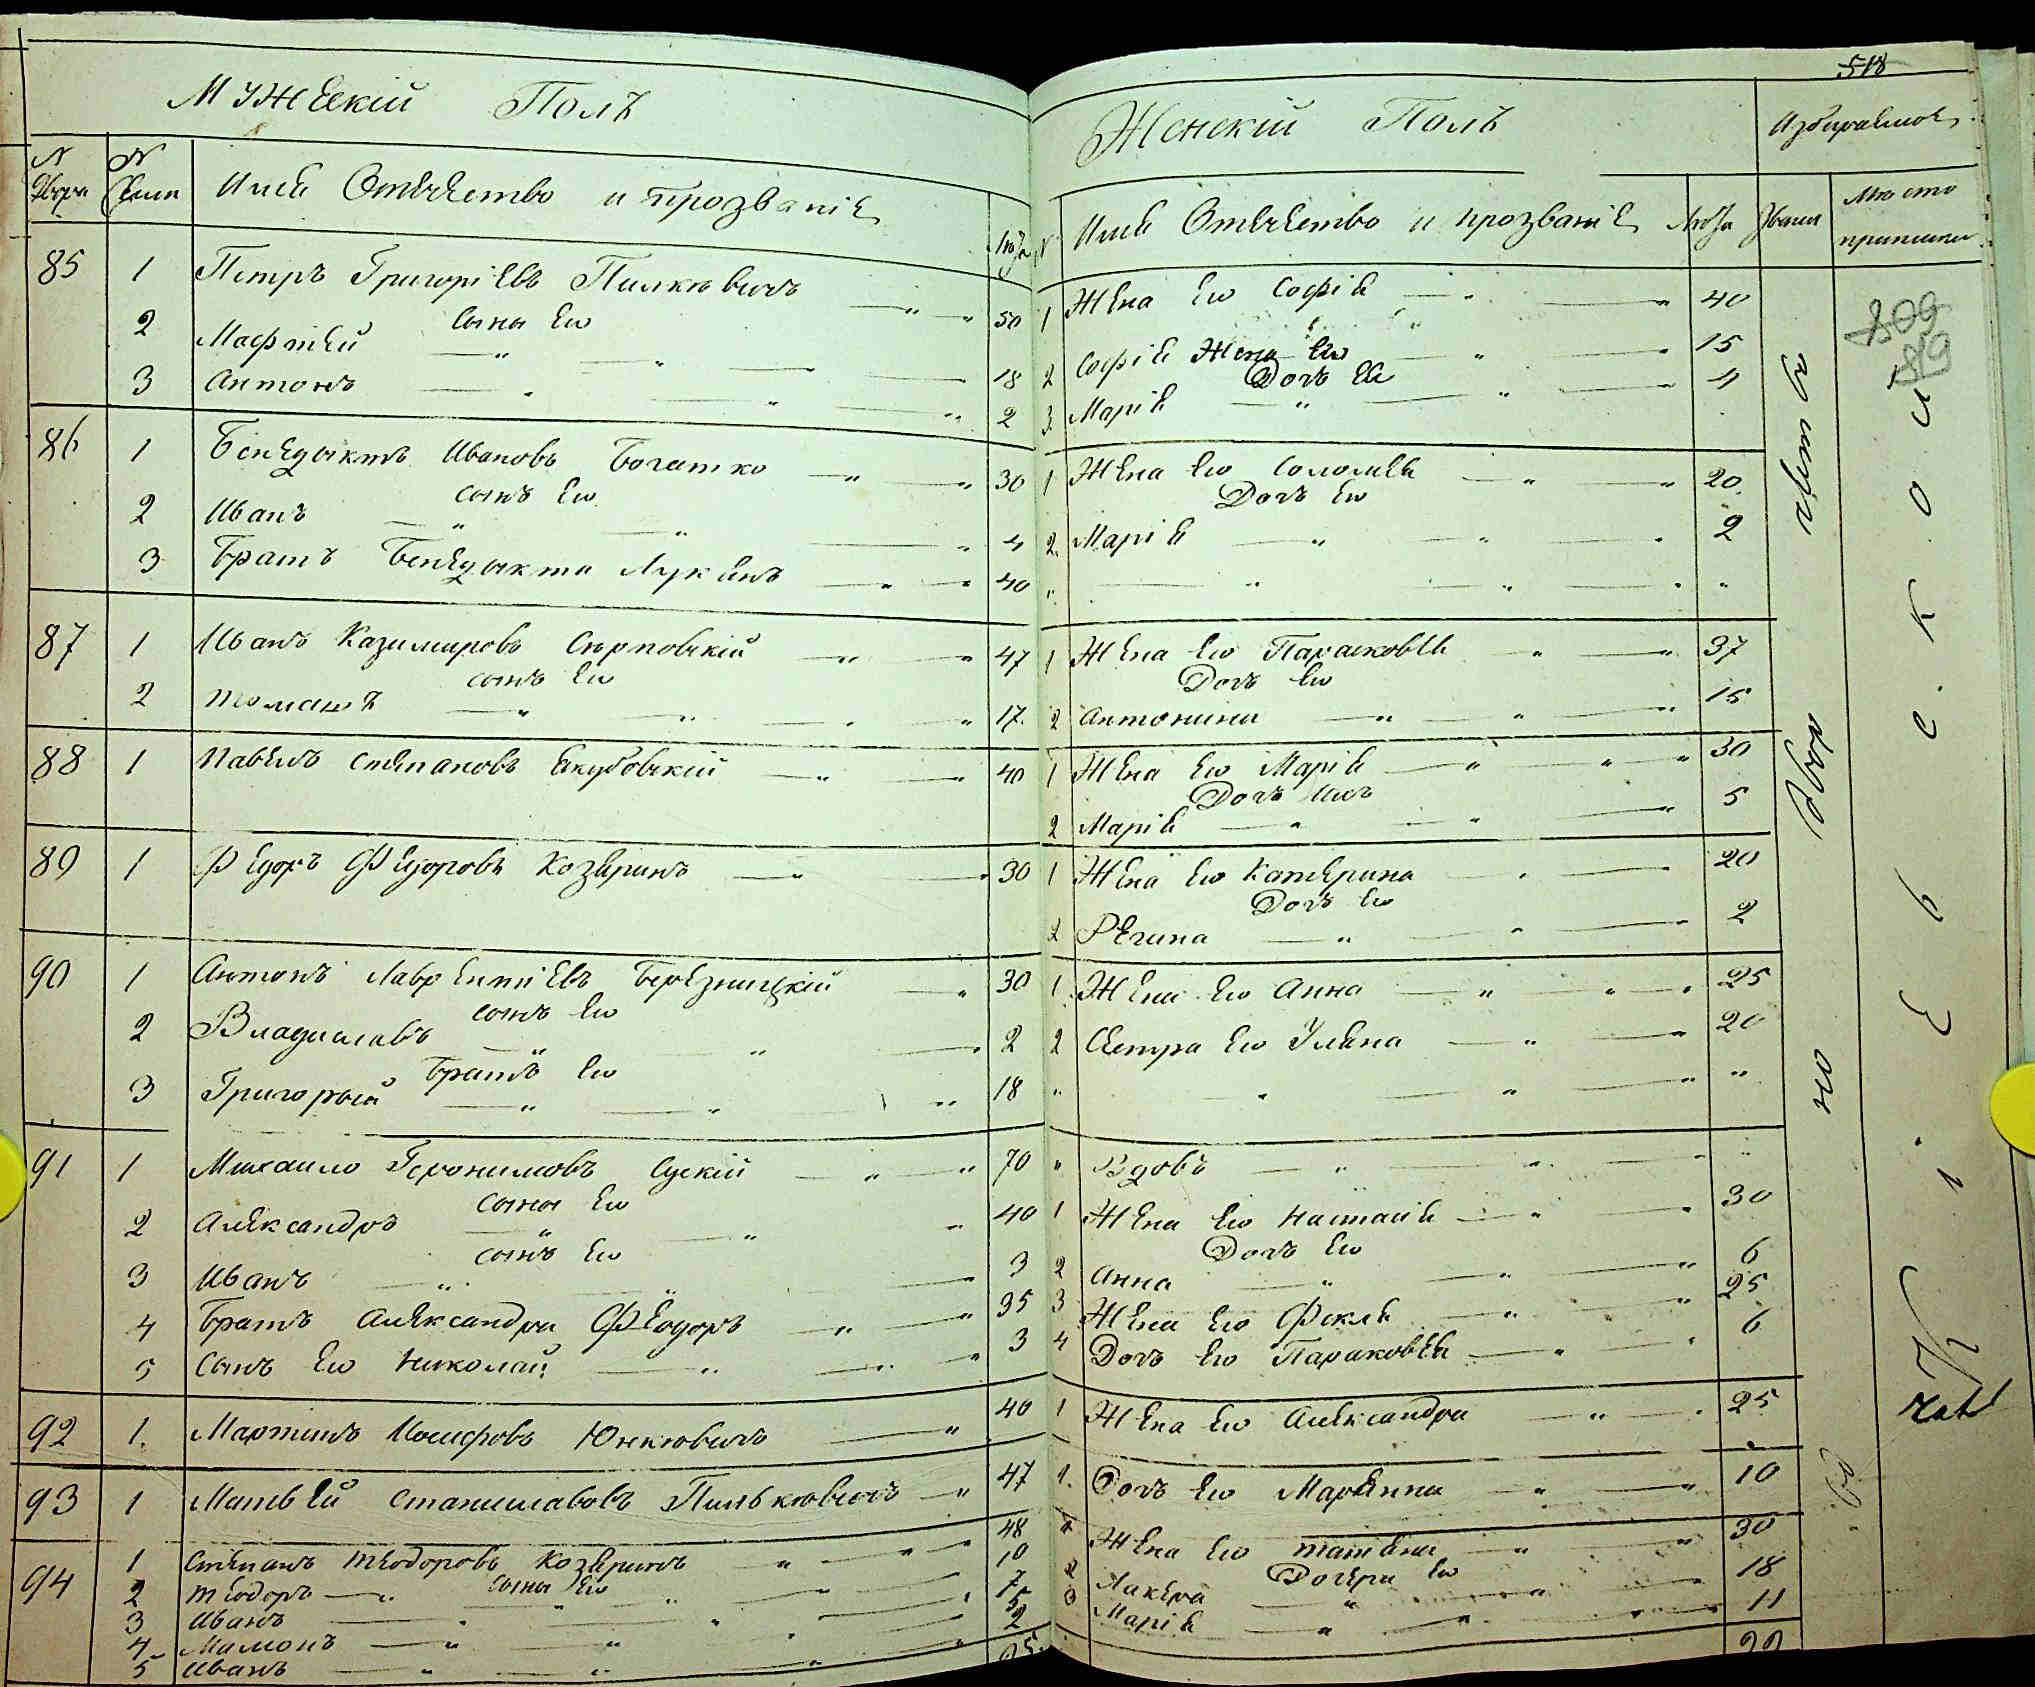 518
Мужескій Полъ
N Двора N Семи Имя Отечество и прозваніе Лѣта
85 1 Петръ Григоріевъ Пилкевичъ 50
сыны Его
2 Мафтей 18
3 Антонъ 2
86 1 Бенедыктъ Ивановъ Богатко 30
сынъ Его
2 Иванъ 4
3 Братъ Бенедыкта Лукянъ 40
87 1 Иванъ Казимировъ Сѣрповскій 47
сынъ Его
2 Томашъ 17
88 1 Павелъ Степановъ Якубовскій 40
89 1 Федоръ Федоровъ Козяринъ 30
90 1 Антонъ Лаврентіевъ Березницкій 30
сынъ Его
2 Владиславъ 2
братъ Его
3 Григорый 18
91 1 Михаило Геронимовъ Сускій 70
сыны Его
2 Александръ 40
сынъ Его
3 Иванъ 3
4 Братъ Александра Феодоръ 35
5 Сынъ Его Николай 3
92 1 Мартинъ Иосифовъ Юнкювичъ 40
93 1 Матвѣй Станиславовъ Пилькювичъ 47
94 1 Степанъ Теодоровъ Козяринъ 48
сыны Его
2 Теодоръ 10
3 Иванъ 7
4 Мамонъ 5
5 Иванъ 2
Женскій Полъ
N Имя Отечество и прозваніе Лѣта Званія Мѣсто приписки
1 Жена Его Софія 40
2 Софія Жена Его 15
Дочь Ея
3 Марія 4
1 Жена Его Соломея 20
Дочь Его
2 Марія 2
1 Жена Его Парасковья 37
Дочь Его
2 Антонина 15
1 Жена Его Марія 30
Дочь ихъ
2 Марія 5
1 Жена Его Катерина 20
Дочь Его
2 Регина 2
1 Жена Его Анна 25
2 Сестра Его Уляна 20
Вдовъ
1 Жена Его Настасія 30
Дочь Его
2 Анна 6
3 Жена Его Фекля 25
4 Дочь Его Параковья 6
1 Жена Его Александра 25
1 Дочь Его Марянна 10
Жена Его Татяна 30
Дочери Его
2 18
3 Марія 11
809
819
Двор